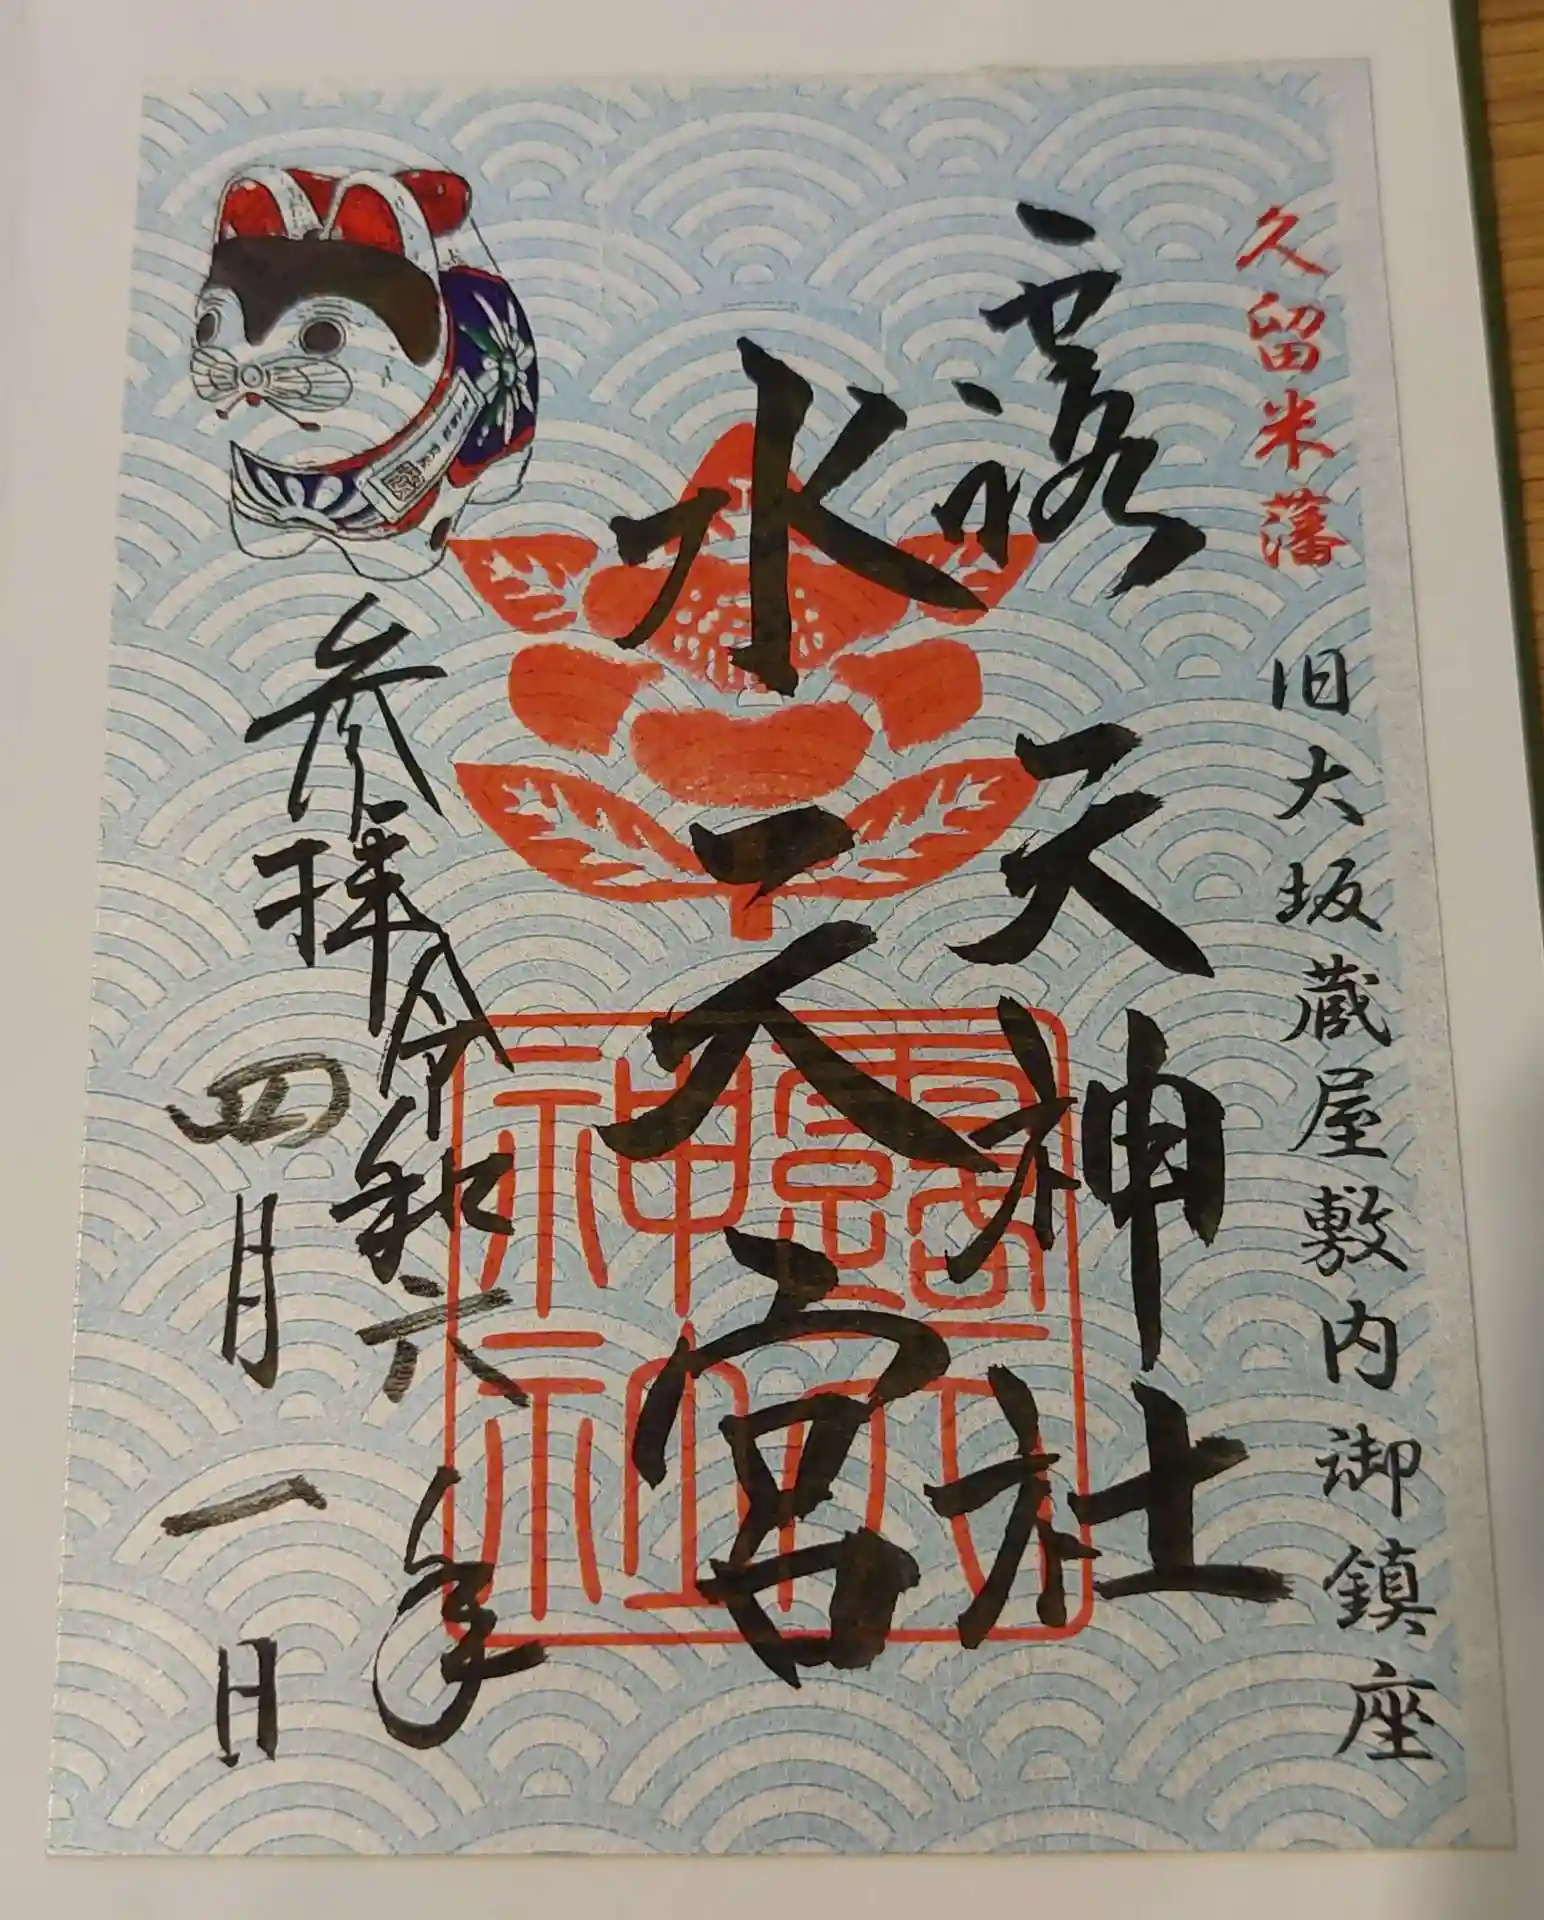 久留米藩
旧大坂蔵屋敷内御鎮座
露天神社
水天宮
参拝令和六年
四月一日
露天
神社